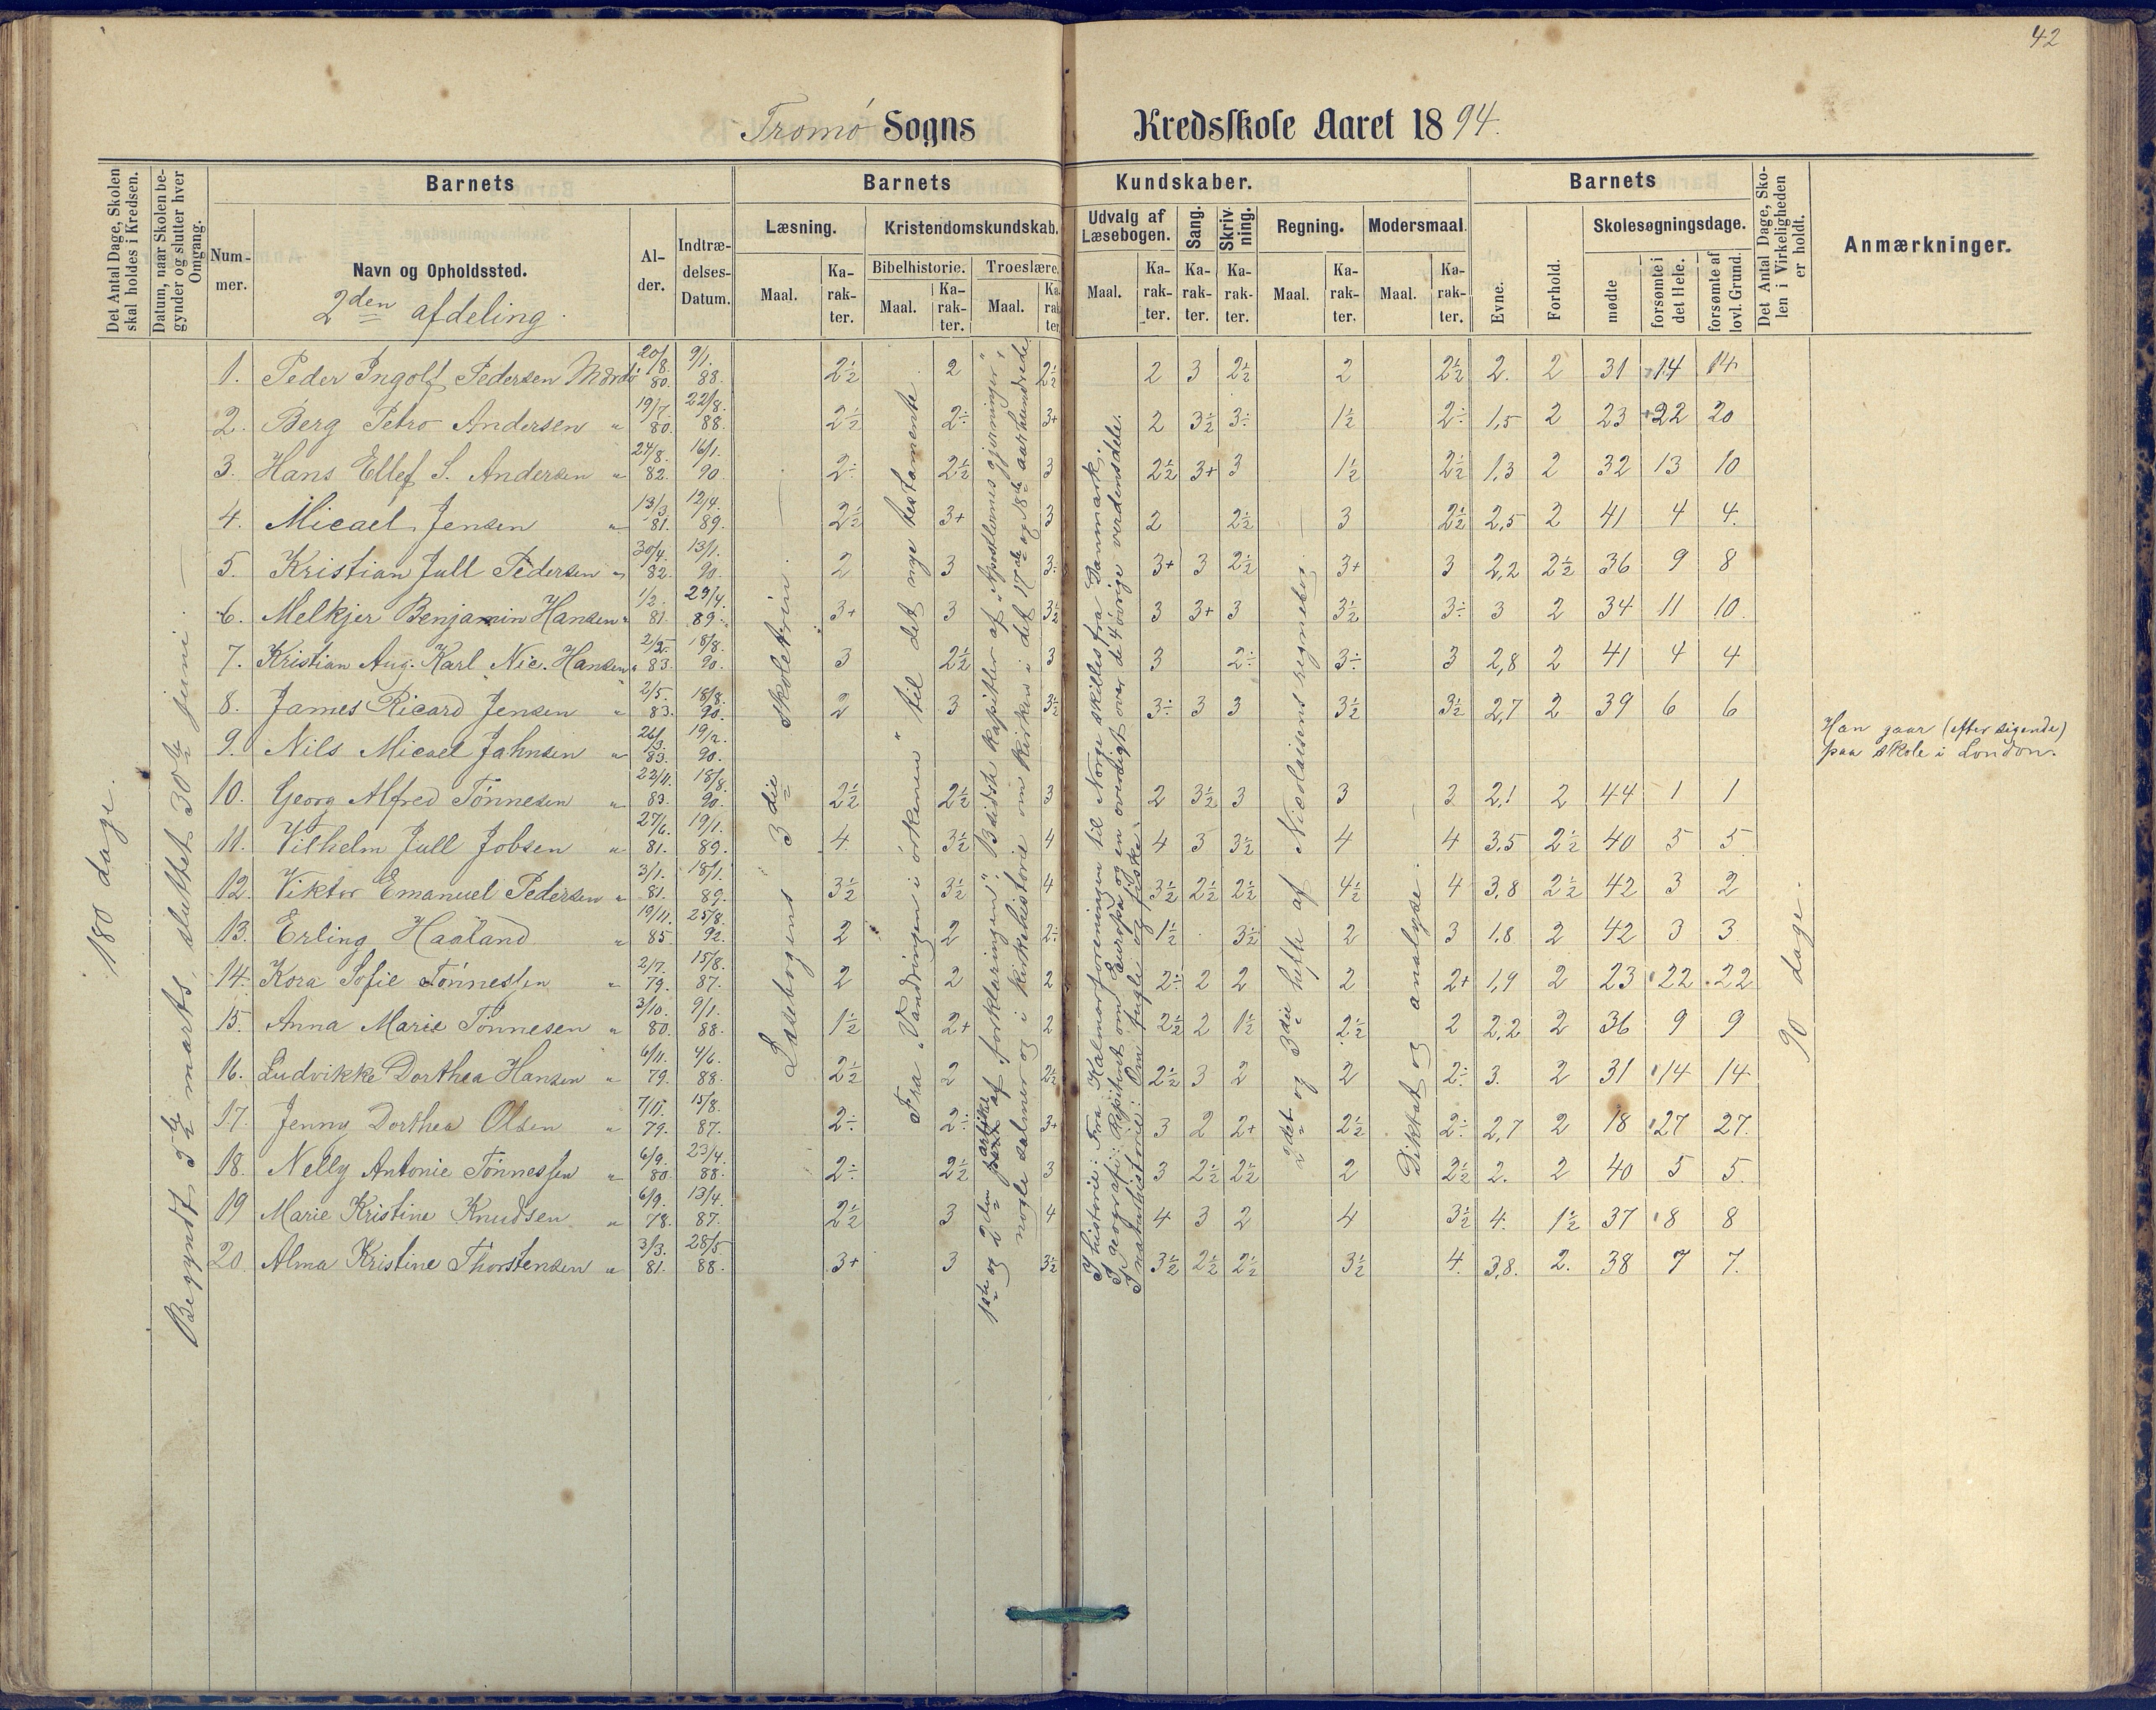 42
Tromø Sogns Kredsskole Aaret 1894.
Det Antal Dage, Skolen skal holdes i Kredsen.
Datum, naar Skolen begynder og slutter hver Omgang.
Barnets
Barnets Kundskaber.
Barnets
Det Antal Dage, Skolen i Virkeligheden er holdt.
Anmærkninger.
Nummer.
Navn og Opholdssted.
2den afdeling.
Alder.
Indtrædelses-Datum.
Læsning. Maal. Karakter.
Kristendomskundskab. Bibelhistorie. Maal. Karakter. Troeslære. Maal. Karakter.
Udvalg af Læsebogen. Maal. Karakter.
Sang. Karakter.
Skrivning. Karakter.
Regning. Maal. Karakter.
Modersmaal. Maal. Karakter.
Evne. Forhold.
Skolesøgningsdage. mødte forsømte i det Hele. forsømte af lovl. Grund.
180 dage.
Begyndt 5te marts, sluttet 30te juni.
Læsebogens 3die skoletrin.
Fra "Vandringen i ørkenen" til det nye testamente
1ste og 2den artikel af "forklaringen". Bibelsk kapitler af "Apostlernes gjerninger",
nogle salmer og i kirkehistorie om kirken i det 17de og 18de aarhundrede
I historie: Fra Kalmarforeningen til Norge skilles fra Danmark.
I geografi: Repitert om Europa og en oversigt over de 4 øvrige verdensdele.
I naturhistorie: Om fugle og fiske.
2det og 3die hefte af Nicolaisens regnebog
Diktat og analyse.
90 dage.
1. Peder Ingolf Pedersen Mærdø 20/8. 80. 9/1. 88. 2½ 2 2½ 2 3 2½ 2 2½ 2. 2 31 14 14
2. Berg Petro Andersen " 19/7. 80. 22/8. 88. 2½ 2÷ 3+ 2 3½ 3÷ 1½ 2÷ 1,5 2 23 22 20
3. Hans Ellef S. Andersen " 24/8. 82. 16/1. 90. 2÷ 2½ 3 2½ 3+ 3 1½ 2½ 1,3 2 32 13 10
4. Micael Jensen " 13/3. 81. 12/4. 89. 2½ 3+ 3 2 2½ 3 2½ 2,5 2 41 4 4.
5. Kristian Jull Pedersen " 30/4. 82. 13/1. 90. 2 3 3÷ 3+ 3 2½ 3+ 3 2,2 2½ 36 9 8
6. Melkjer Benjamin Hansen " 1/2. 81. 29/4. 89. 3+ 3 3½ 3 3+ 3 3½ 3÷ 3 2 34 11 10.
7. Kristian Aug. Karl Nic. Hansen " 83. 18/8. 90. 3 2½ 3 3 2÷ 3÷ 3 2,8 2 41 4 4
8. James Ricard Jensen " 2/5. 83. 18/8. 90. 2 3 3½ 3÷ 3 3 3½ 3½ 2,7 2 39 6 6
9. Nils Micael Jahnsen " 26/3. 83. 19/2. 90. Han gaar (efter sigende)
paa skole i London.
10. Georg Alfred Tønnesen " 22/11. 83. 18/8. 90. 2½ 2½ 3 2 3½ 3 3 3 2,1 2 44 1 1
11. Vilhelm Jull Jobsen " 27/6. 81. 19/1. 89. 4. 3½ 4 4 3 3½ 4 4 3,5 2½ 40 5 5
12. Viktor Emanuel Pedersen " 3/1. 81. 18/1. 89. 3½ 3½ 4 3½ 2½ 2½ 4½ 4 3,8 2½ 42 3 2
13. Erling Haaland " 19/11. 85. 25/8. 92. 2 2 2÷ 1½ 3½ 2 3 1,8 2 42 3 3
14. Kora Sofie Tønnessen " 2/7. 79. 15/8. 87. 2 2 2 2÷ 2 2 2 2+ 1,9 2 23 22 22
15. Anna Marie Tønnesen " 3/10. 80. 9/1. 88. 1½ 2+ 2 2½ 2 1½ 2½ 2 2,2 2 36 9 9
16. Ludvikke Dorthea Hansen " 6/11. 79. 4/6. 88. 2½ 2 2½ 2½ 3 2 2 2÷ 3. 2 31 14 14
17. Jenny Dorthea Olsen " 7/11. 79. 15/8. 87. 2÷ 2÷ 3+ 3 2 2+ 2½ 2÷ 2,7 2 18 27 27.
18. Nelly Antonie Tønnessen " 6/9. 80. 23/4. 88. 2÷ 2½ 3 3 2½ 2½ 2 2½ 2. 2 40 5 5
19 Marie Kristine Knudsen " 6/9. 78. 13/4. 87. 2½ 3 4 4 3 2 4 3½ 4. 1½ 37 8 8
20. Alma Kristine Thorstensen " 3/3. 81. 28/5 88. 3+ 3 3½ 3½ 2½ 2½ 3½ 4. 3,8. 2. 38 7 7.